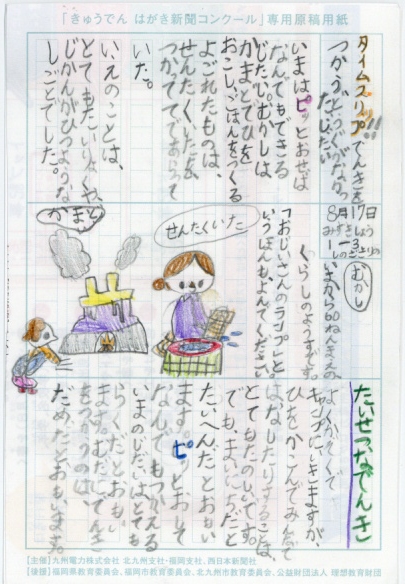 「きゅうでん はがき新聞コンクール」専用原稿用紙
タイムスリップ!!
でんきを
つかうどうぐがなかった
じだい
いまはピッとおせば
なんでもできる
じだい。むかしは
かまどでひを
おこし、ごはんをつくる
よごれたものは、
せんたくいたを
つかって てであらって
いた。
いえのことは、
とてもたいりょくや、
じかんがひつような
しごとでした。
8月17日
むかし
いまから60ねんまえの
くらしのようすです。
「おじいさんのランプ」と
いうほんも、よんでください。
せんたくいた
かまど
たいせつなでんき
キャンプにいきますが、
ひをかこんでみんなで
はなしたりすることは、
とてもたのしいです。
でも、まいにちだと
たいへんだとおもい
ます。ピッとおして
なんでもつかえる
いまのじだいはとても
らくだとおもい
ます。むだにでんき
をつかうのは、
だめだとおもいます。
【主催】九州電力株式会社 北九州支社・福岡支社、西日本新聞社
【後援】福岡県教育委員会、福岡市教育委員会、北九州市教育委員会、公益財団法人 理想教育財団